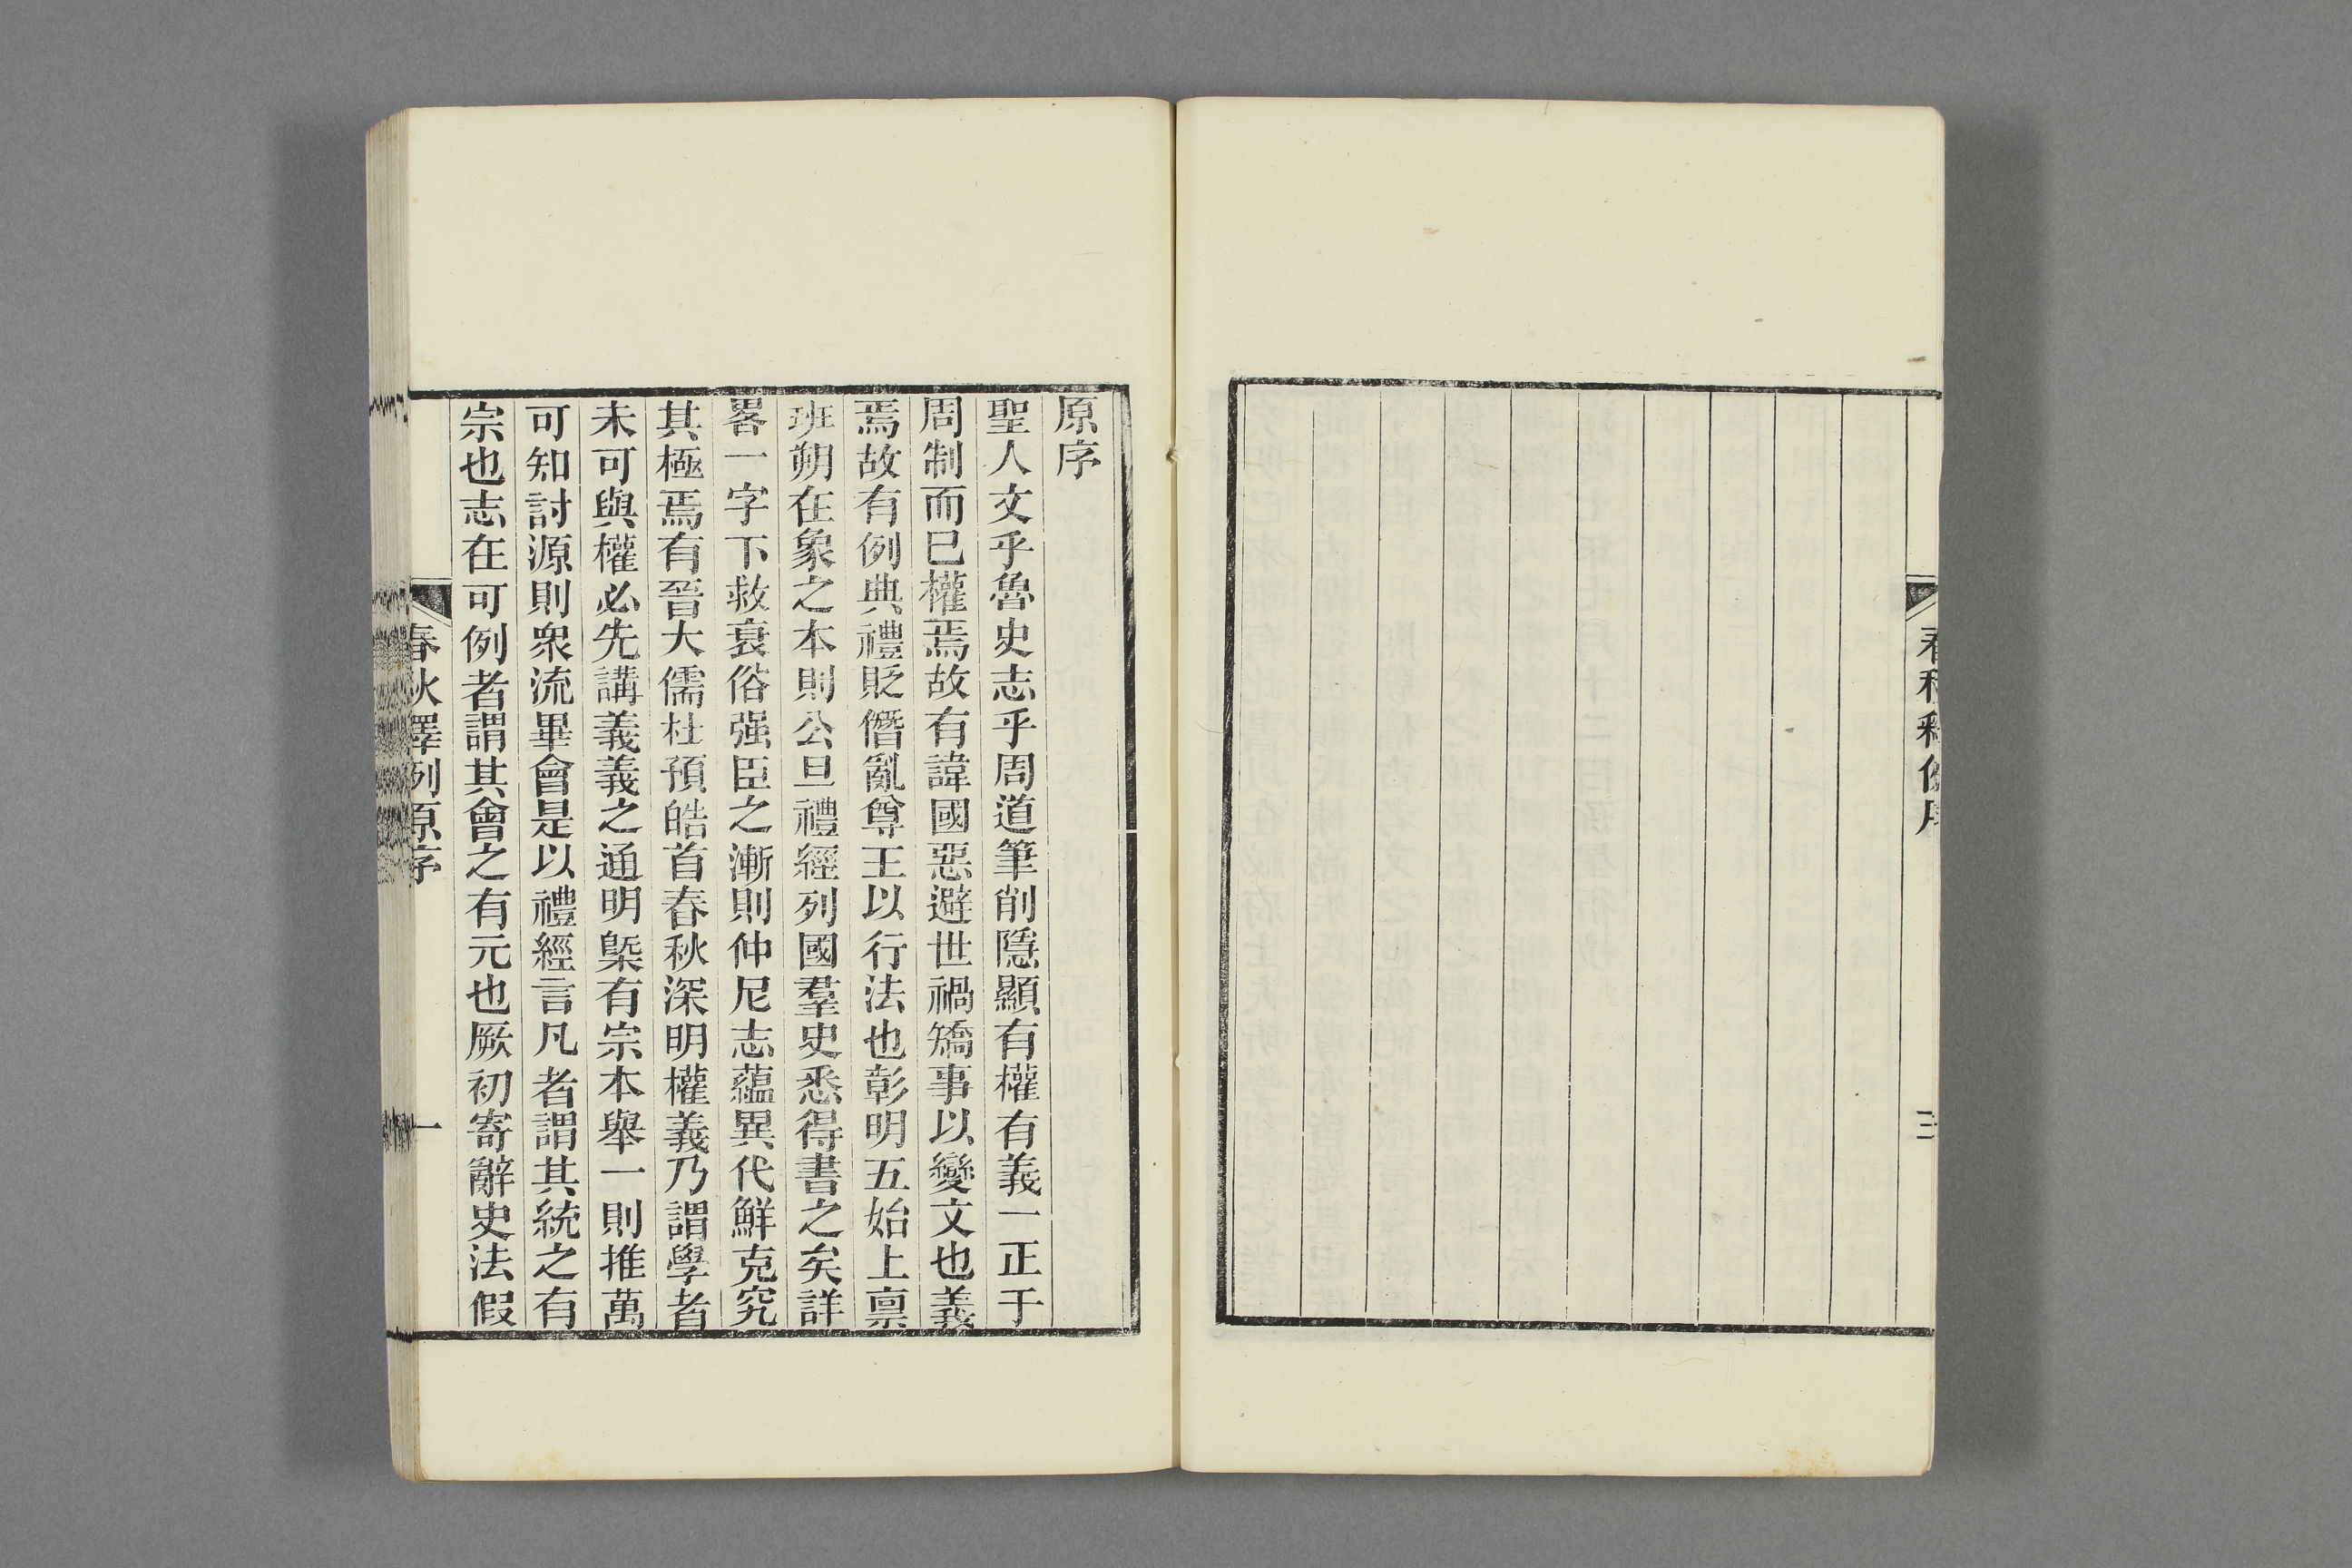 春秋釋例序
三
原序
聖人文乎魯史志乎周道筆削隱顯有權有義一正于
周制而已權焉故有諱國惡避世禍矯事以變文也義
焉故有例典禮貶僭亂尊王以行法也彰明五始上禀
班朔在象之本則公旦禮經列國羣史悉得書之矣詳
畧一字下救衰俗强臣之漸則仲尼志蘊異代鮮克究
其極焉有晉大儒杜預皓首春秋深明權義乃謂學者
未可與權必先講義義之通明槩有宗本舉一則推萬
可知討源則衆流畢會是以禮經言凡者謂其統之有
宗也志在可例者謂其會之有元也厥初寄辭史法假
春秋釋例原序
一